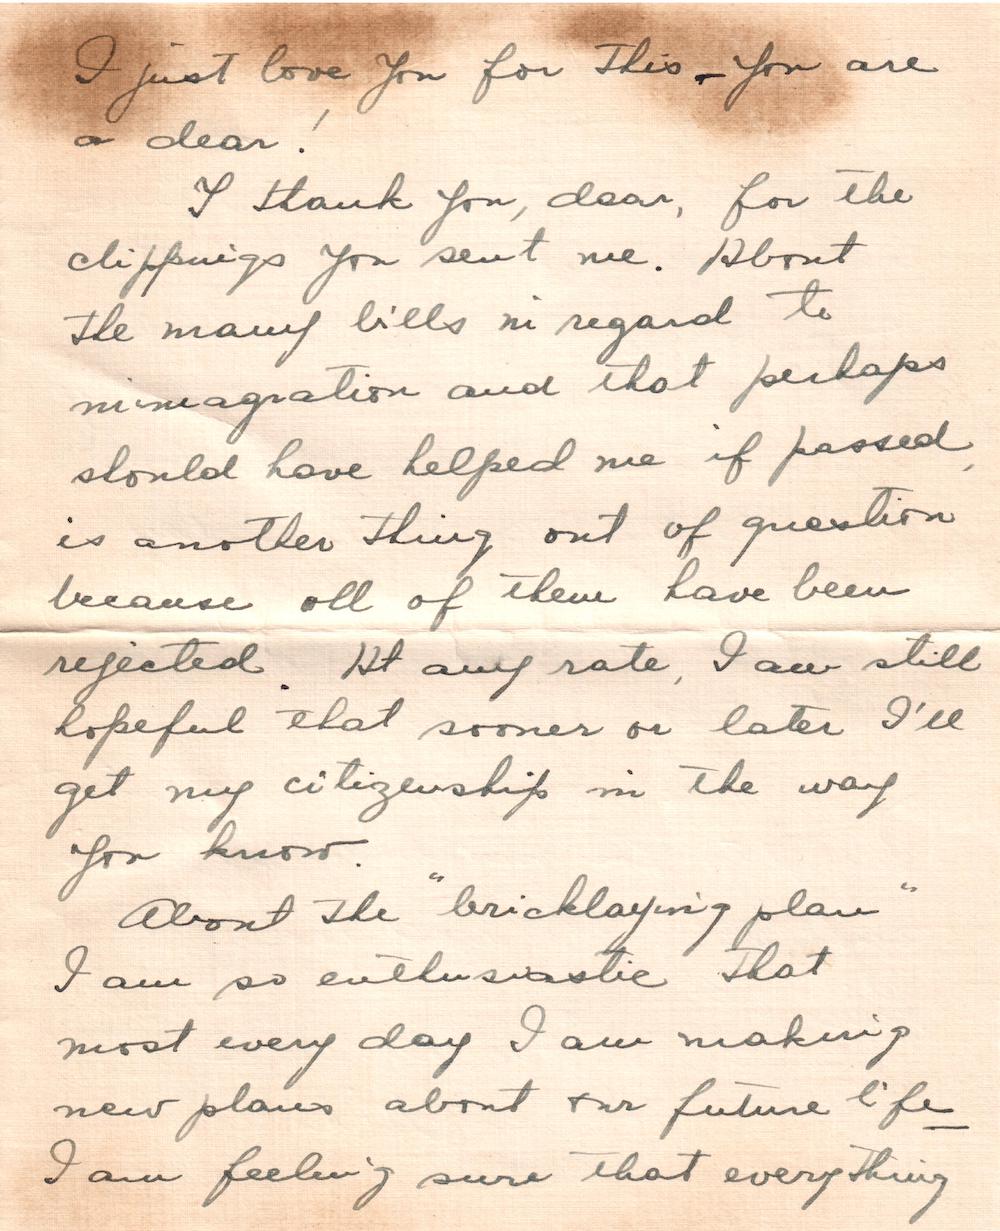 I just love you for this – you are
a dear!
I thank you, dear, for the
clippings you sent me. About
the many bills in regard to
inmagration and that perhaps
should have helped me if passed,
is another thing out of question
because all of them have been
rejected. At any rate, I am still
hopeful that sooner or later I'll
get my citizenship in the way
you know.
About the "bricklaying plan"
I am so enthusiastic that
most every day I am making
new plans about our future life –
I am feeling sure that everything